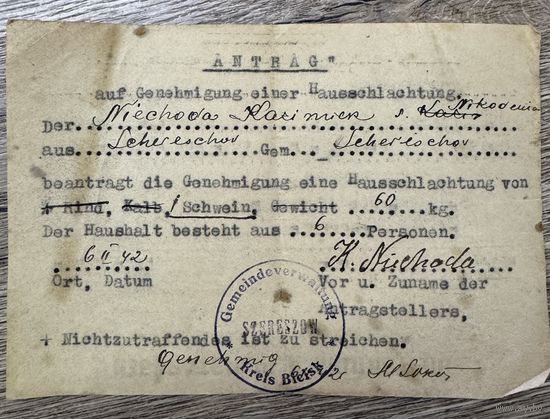 "ANTRAG"
auf Genehmigung einer Hausschlachtung.
Der Niechoda Kazimier s. Nikodema
aus Schereschov Gem. Schereschov
beantragt die Genehmigung eine Hausschlachtung von
+ Rind, Kalb, 1 Schwein, Gewicht 60 kg.
Der Haushalt besteht aus 6 Personen.
6 II 42 K. Niechoda
Ort, Datum Vor u. Zuname der
Atragstellers,
+ Nichtzutraffendes ist zu streichen.
Genehmig
Gemeindeverwaltung
SZERESZOW
Kreis Bielsk